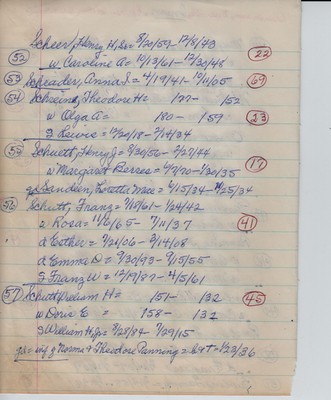 Scheer, Henry H, Sr = 8/20/59 - 12/8/43
52 w Caroline A = 10/13/61 - 12/30/48 22
53 Schrader, Anna S = 4/19/41 - 10/11/05 69
54 Schreiner, Theodore H = /77 - /52
w Olga A = /80 - /59 23
S Lewis = 12/20/18 - 2/14/34
55 Schuett, Henry J = 3/30/56 - 2/27/44
w Margaret Berres = 4/7/70 - 1/20/35 17
gd Sandeen, Loretta Mae = 6/15/34 - 10/25/34
56 Schutt, Franz = 7/19/61 - 1/24/42
w Rosa = 11/6/65 - 7/11/37 41
d Esther = 3/21/06 - 2/14/08
d Emma D = 3/30/93 - 9/15/55
S Franz W = 12/19/87 - 4/5/61
57 Schutt, William H = /51 - /32 45
w Doris E = /58 - /32
S William H Jr = 3/28/84 - 7/29/15
inf of Norma & Theodore Panning = b & + = 1/23/36